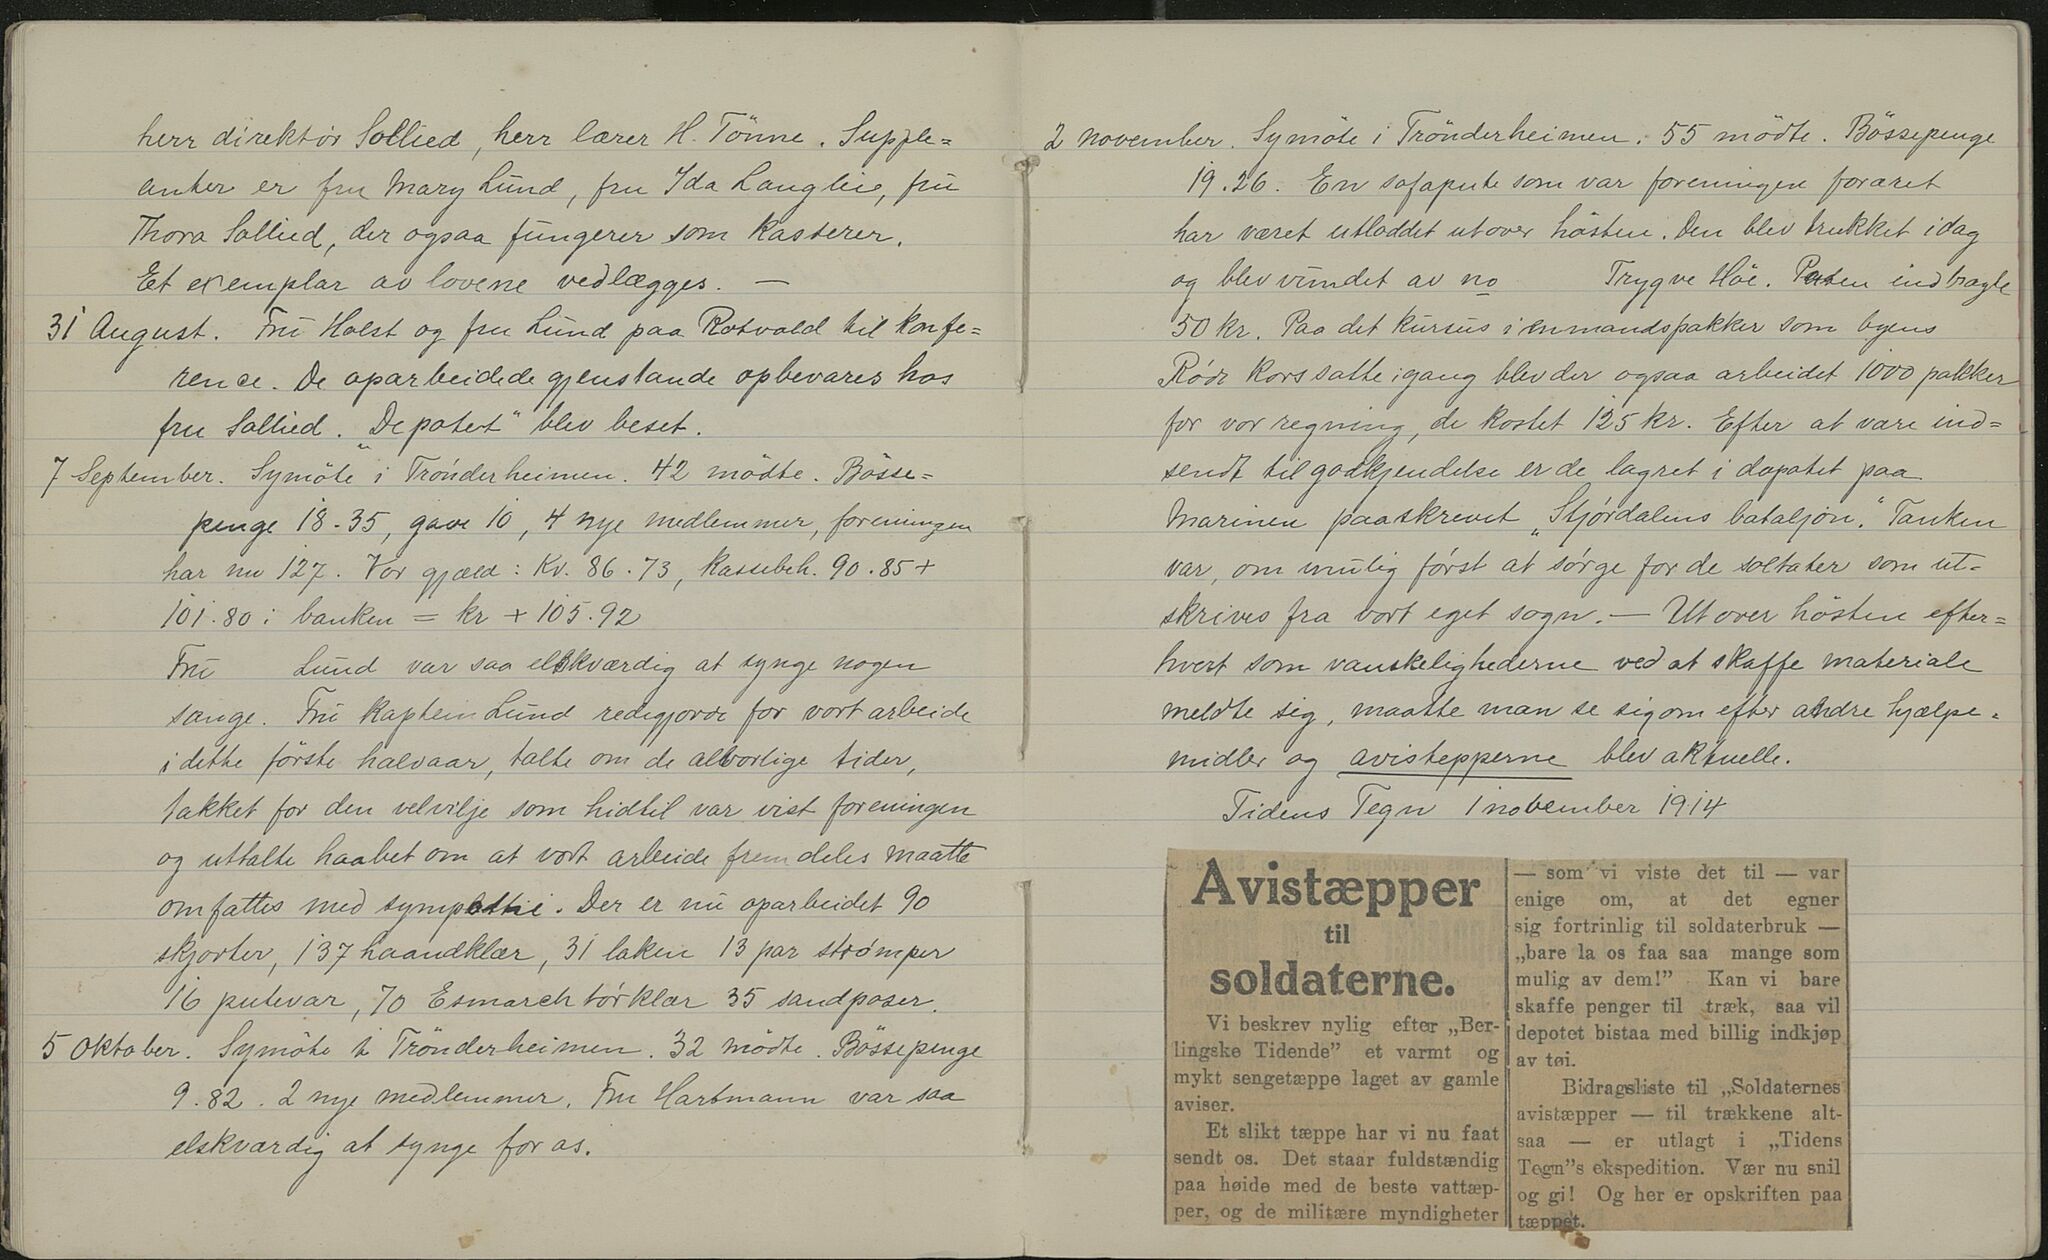 herr direktör Sollied, herr lærer H. Tönne. Supple=
anter er fru Mary Lund, fru Ida Langlie, fru
Thora Sollied, der ogsaa fungerer som Kasserer.
Et exemplar av lovene vedlægges. —
31 August. Fru Holst og fru Lund paa Rotvold til konfe=
rence. De oparbeidede gjenstande opbevares hos
fru Sollied. „Depotet" blev beset.
7 September. Symöte i Trönderheimen. 42 mödte. Bösse=
penge 18.35, gave 10, 4 nye medlemmer, foreningen
har nu 127. Vor gjæld: Kr. 86.73, kassebeh. 90.85 +
101.80 i banken = kr + 105.92
Fru Lund var saa elskværdig at synge nogen
sange. Fru Kaptein Lund redegjorde for vort arbeide
i dette förste halvaar, talte om de alvorlige tider,
takket for den velvilje som hidtil var vist foreningen
og uttalte haabet om at vort arbeide fremdeles maatte
omfattes med sympathi. Der er nu oparbeidet 90
skjorter, 137 haandklær, 31 laken 13 par strømper
16 putevar, 70 Esmarch törklær 35 sandposer.
5 Oktober. Symöte i Trönderheimen. 32 mödte. Bössepenge
9.82. 2 nye medlemmer. Fru Hartmann var saa
elskværdig at synge for os.
2 november. Symöte i Trönderheimen. 55 mödte. Bössepenge
19.26. En sofapute som var foreningen foræret
har været utloddet utover hösten. Den blev trukket idag
og blev vundet av no Trygve Höe. Puten indbragte
50 kr. Paa det kursus i enmandspakker som byens
Röde Kors satte igang blev der ogsaa arbeidet 1000 pakker
for vor regning, de kostet 125 kr. Efter at være ind=
sendt til godkjendelse er de lagret i depotet paa
Marinen paaskrevet „Stjördalens bataljon." Tanken
var, om mulig först at sörge for de soltater som ut=
skrives fra vort eget sogn. — Utover hösten efter=
hvert som vanskelighederne ved at skaffe materiale
meldte sig, maatte man se sig om efter andre hjælpe=
midler og avistepperne blev aktuelle.
Tidens Tegn 1 november 1914
Avistæpper
til
soldaterne.
Vi beskrev nylig efter „Ber-
lingske Tidende” et varmt og
mykt sengetæppe laget av gamle
aviser.
Et slikt tæppe har vi nu faat
sendt os. Det staar fuldstændig
paa høide med de beste vattæp-
per, og de militære myndigheter
— som vi viste det til — var
enige om, at det egner
sig fortrinlig til soldaterbruk —
„bare la os faa saa mange som
mulig av dem!” Kan vi bare
skaffe penger til træk, saa vil
depotet bistaa med billig indkjøp
av tøi.
Bidragsliste til „Soldaternes
avistæpper — til trækkene alt-
saa — er utlagt i „Tidens
Tegn”s ekspedition. Vær nu snil
og gi! Og her er opskriften paa
tæppet.